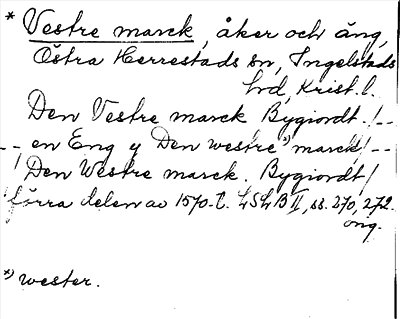 * Vestre marck, åker och äng,
Östra Herrestads sn, Ingelstads
hd, Krist. l.
Den Vestre marck Bygiordt /--
-- en Eng y Den westre *) marck / --
/ Den Westre marck. Bygiordt /
förra delen av 1570-t. LSLB II, ss. 270, 272.
orig.
*) wester.